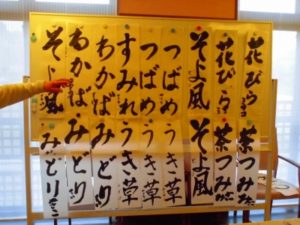 花びら
茶つみ
花びら
茶つみ
そよ風
そよ風
つばめ
うき草
つばめ
うき草
すみれ
うき草
わかば
みどり
わかば
みどり
そよ風
みどり